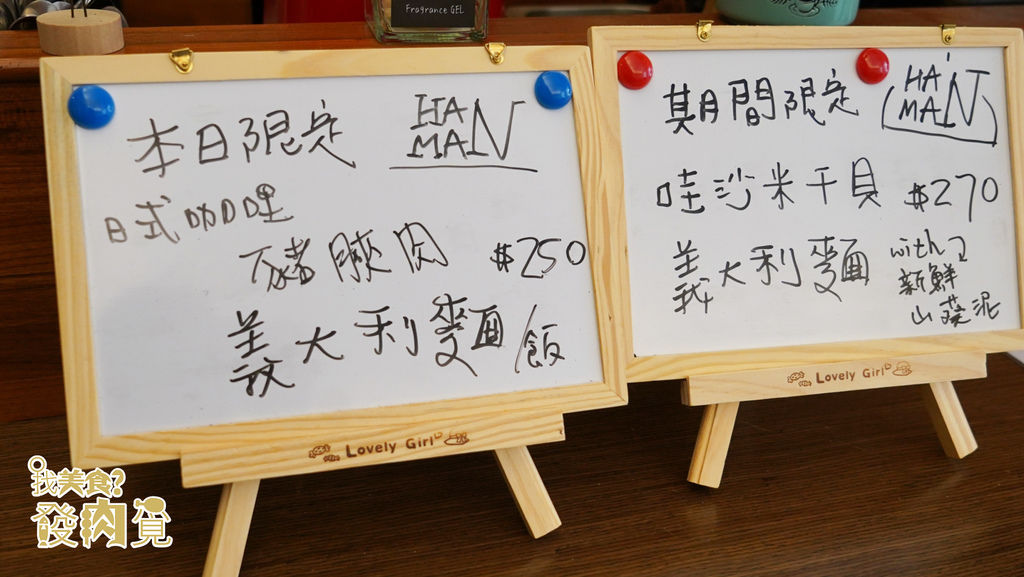 Fragrance GEL
本日限定
HA
MAN
日式咖哩
豬腰肉 $250
義大利麵/飯
Lovely Girl
期間限定
HA
MAN
哇沙米干貝 $270
義大利麵
with
新鮮
山葵泥
Lovely Girl
找美食?
發肉覓